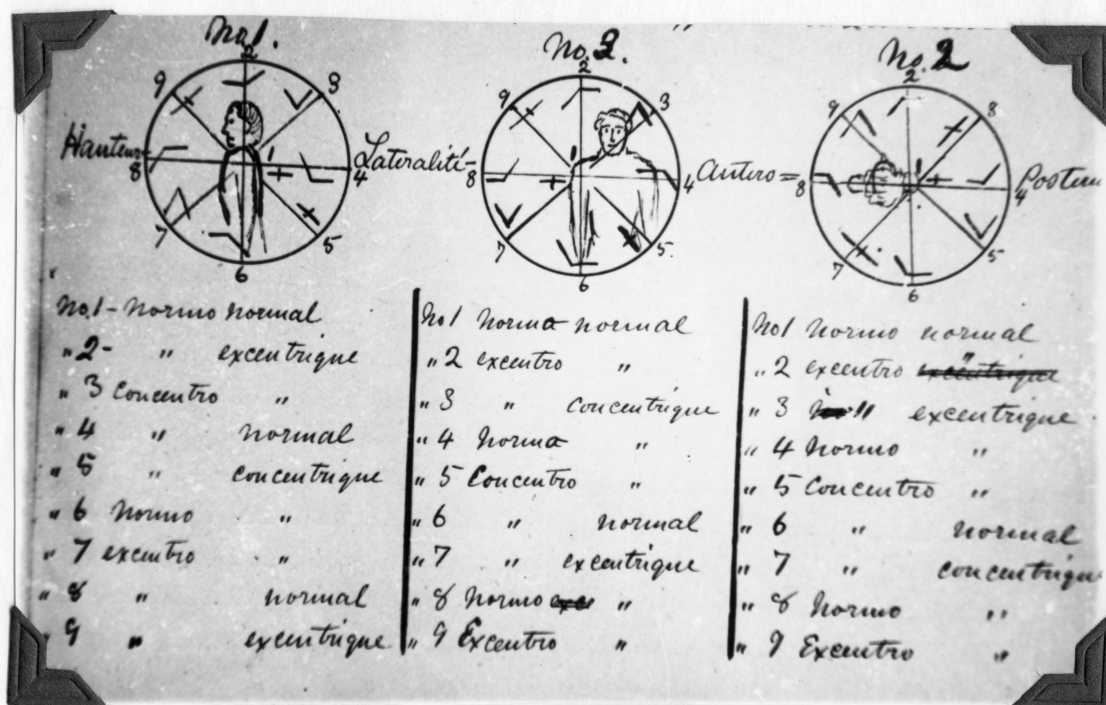 No 1.
No. 2.
No. 2
2
9 3
Hauteur
8 1 4
7 5
6
Latéralité
2
9 3
8 1 4
7 5
6
Antero =
2
9 3
8 1 4
7 5
6
No. 1 - Normo normal
" 2 - " excentrique
" 3 Concentro "
" 4 " normal
" 5 " concentrique
" 6 Normo "
" 7 excentro "
" 8 " normal
" 9 " excentrique
No 1 Normo normal
" 2 excentro "
" 3 " concentrique
" 4 Normo "
" 5 Concentro "
" 6 " normal
" 7 " excentrique
" 8 Normo "
" 9 Excentro "
No 1 Normo normal
" 2 excentro "
" 3 " excentrique
" 4 Normo "
" 5 Concentro "
" 6 " normal
" 7 " concentrique
" 8 Normo "
" 9 Excentro "